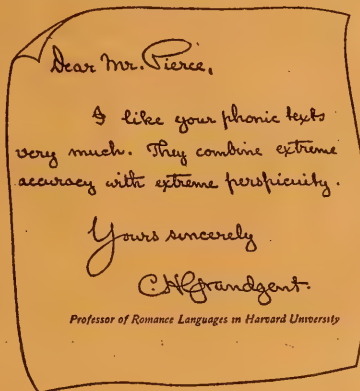 Dear Mr. Pierce,
I like your phonic texts
very much. They combine extreme
accuracy with extreme perspicuity.
Yours sincerely
C H Grandgent.
Professor of Romance Languages in Harvard University